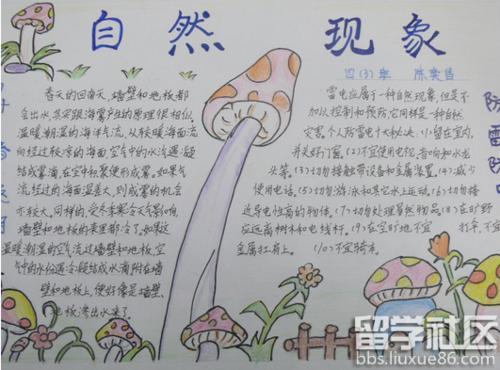 自然现象
四(3)班
春天的回南天，墙壁和地板都
会出水，其实跟海雾产生的原理很相似。
温暖潮湿的海洋气流，从较暖海面流
向经过较凉的海面，空气中的水汽遇凝
结成雾滴，在空中积聚便形成雾。如果气
流经过的海面温差大，则成雾的机会
亦较大。同样的，受冬季寒冷天气影响
墙壁和地板的表面都会了。如果这
温暖潮湿的空气流过墙壁和地板，空
气中的水份遇冷凝结成水滴附在墙
壁和地板上，便好像是墙壁、
地板渗出水来了。
雷电应属于一种自然现象，但是不
加以控制和预防，它同样是一种自然
灾害。个人防雷电十大秘决：(1)留在室内，
并关好门窗。(2)不宜使用电视、音响和水龙
头等。(3)切勿接触带设备和金属装置。(4)减少
使用电话。(5)切勿游泳和其它水上运动。(6)切勿接
近导电性高的物体。(7)切勿处理易燃物品。(8)在旷野
应远离树木和电线杆。(9)在空旷地不宜打伞，不宜
金属扛肩上。(10)不宜骑车。
防雷电
留学社区
bbs.liuxue86.com